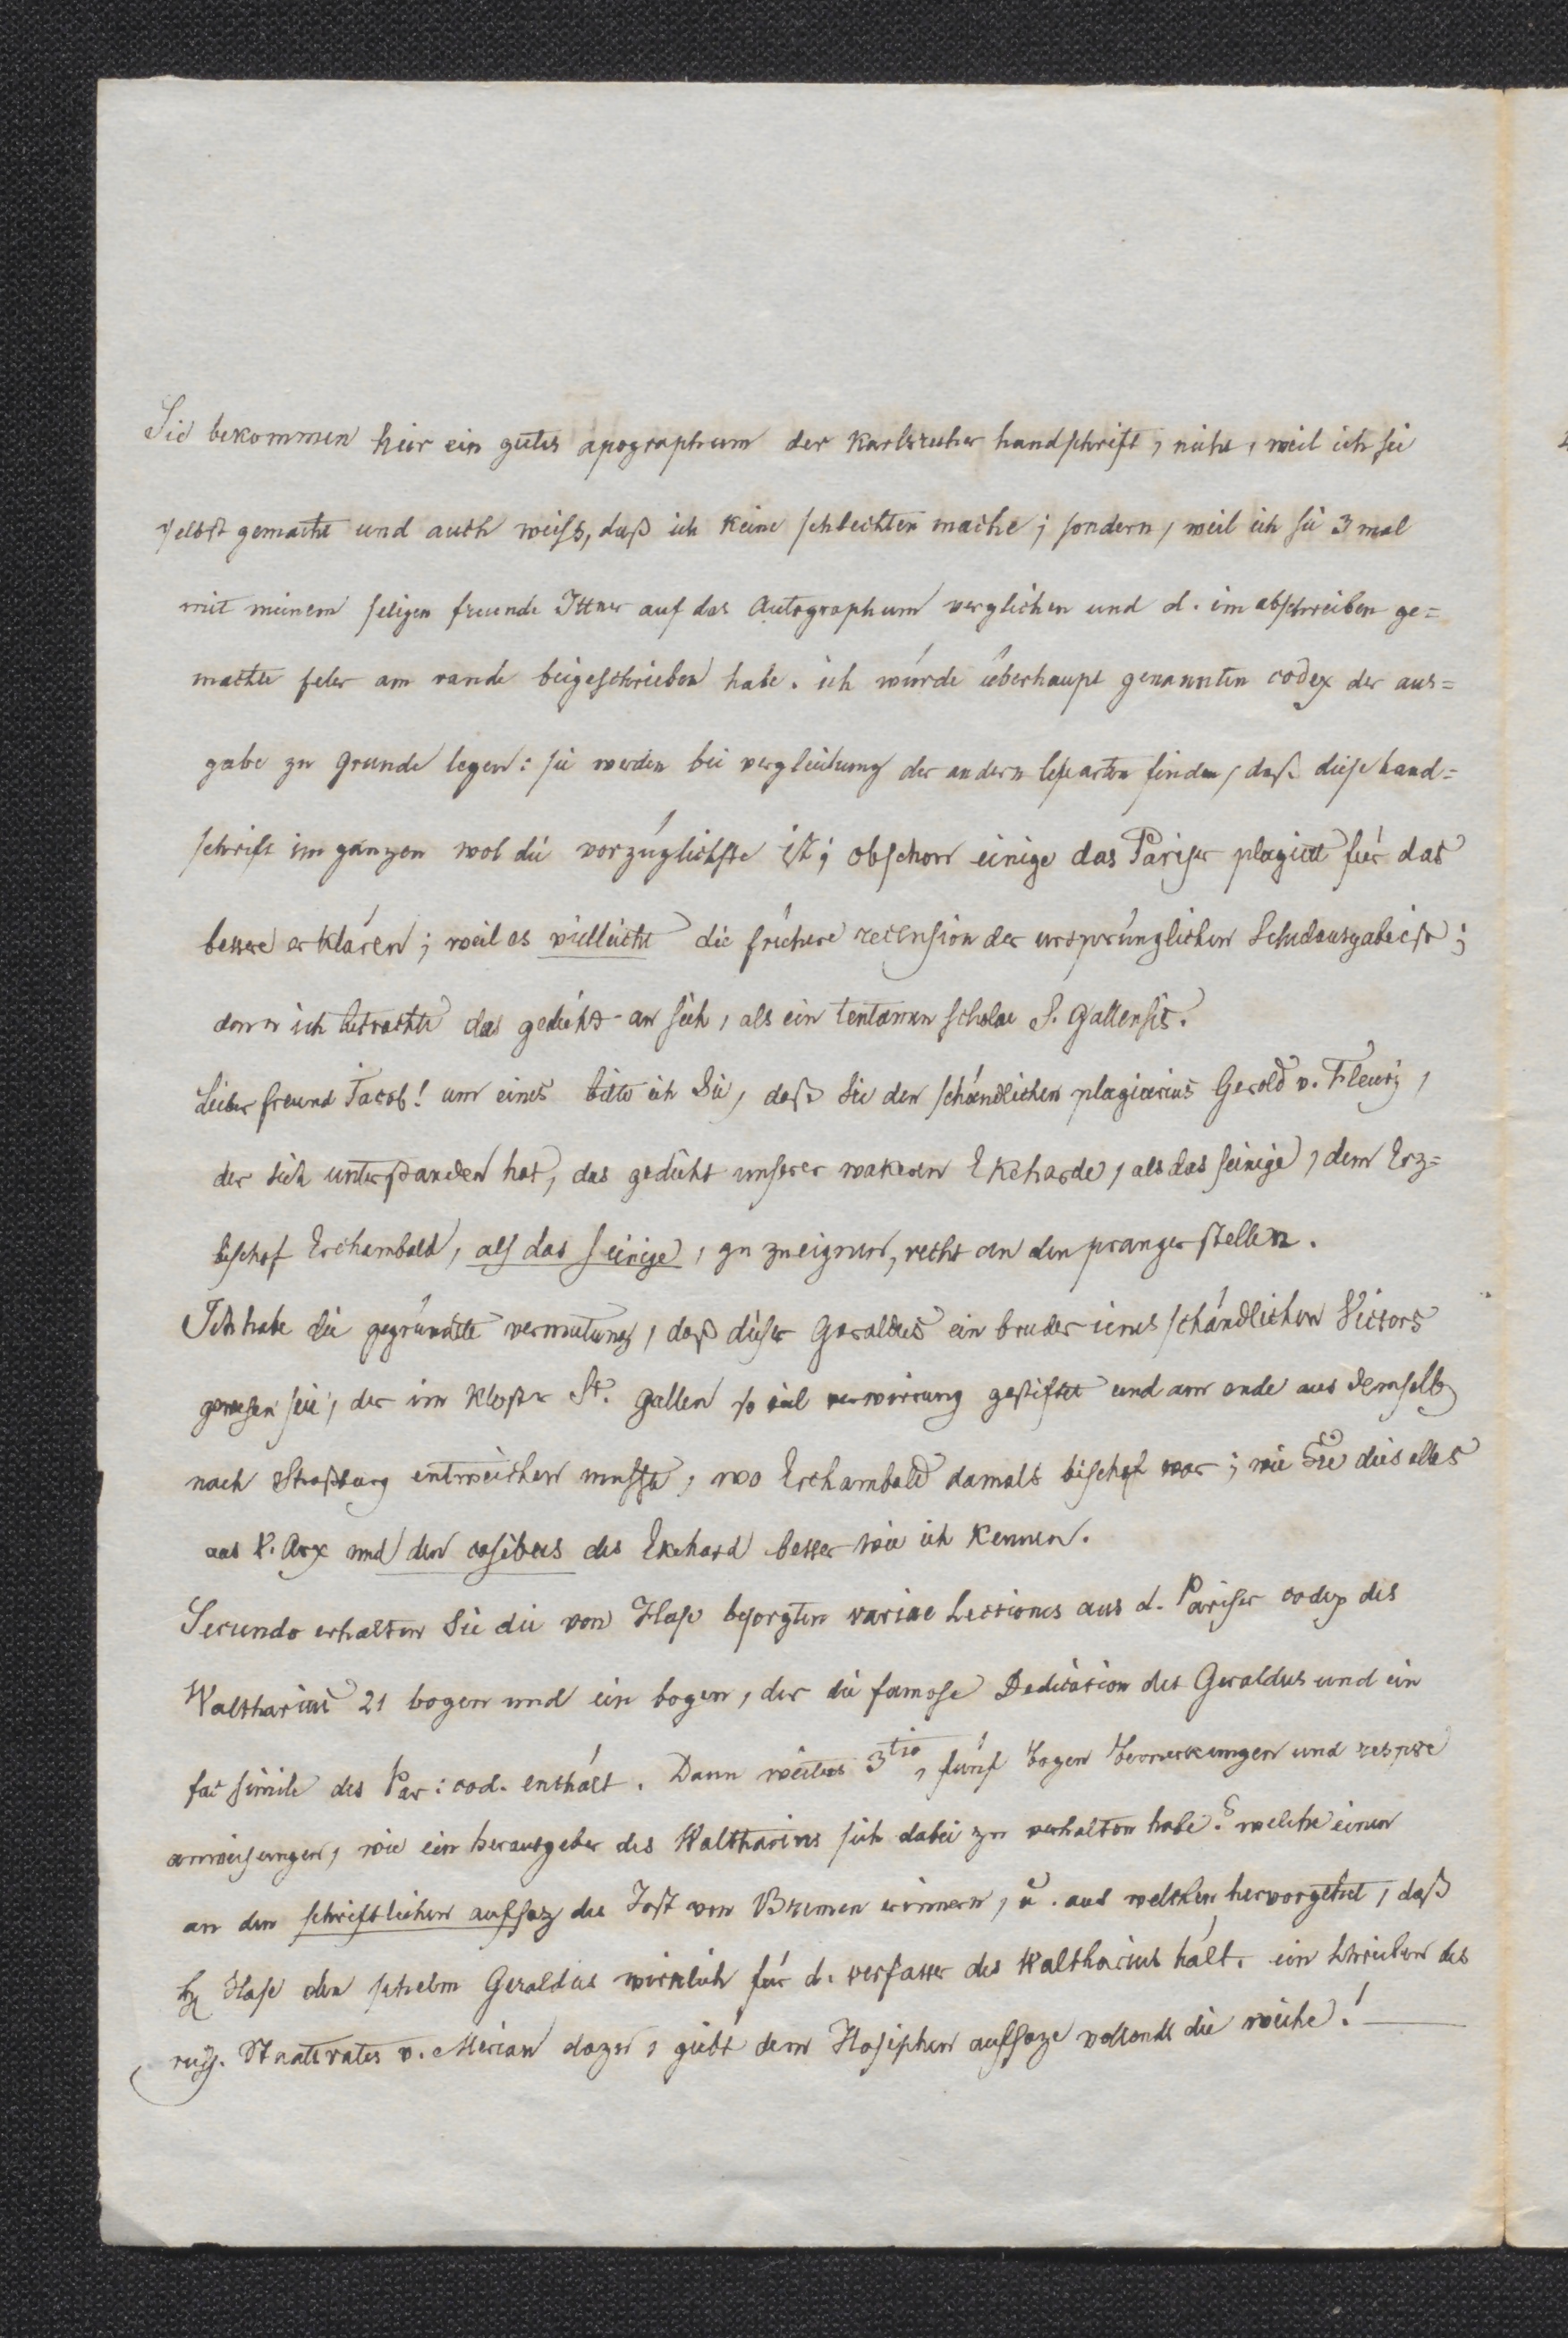 Sie bekommen hier ein gutes apographum der Karlsruher handschrift, nicht, weil ich sie
selbst gemacht und auch weiss, daß ich keine schlechten mache; sondern, weil ich sie 3 mal
mit meinem seligen freunde Ittner auf das Autographum verglichen und d. im abschreiben ge=
machte feler am rande beigeschrieben habe. ich würde überhaupt genannten codex der aus=
gabe zu grunde legen: sie werden bei vergleichung der andern lesearten finden, daß diese hand=
schrift im ganzen wol die vorzüglichste ist; obschon einige das Pariser plagiat für das
bessere erklären; weil es vielleicht die frühere recension der ursprünglichen Schulausgabe ist;
denn ich betrachte das gedicht an sich, als ein tentamen scholae S. Gallensis.
Lieber freund Jacob! um eines bitte ich Sie, daß Sie den schändlichen plagiarius Gerold v. Fleury,
der sich unterstanden hat, das gedicht unserer wakeren Ekeharde, als das seinige, dem Erz=
bischof Erchambald, als das seinige, zu zueignen, recht an den pranger stellen.
Ich habe die gegründete vermutung, daß dieser Geraldus ein bruder jenes schändlichen Victors
gewesen sei, der im kloster St. Gallen so viel verwirrung gestiftet und am ende aus demselb
nach Straßburg entweichen musste, wo Erchambald damals bischof war; wie Sie dies alles
aus v. Arx und den casibus des Ekehard besser wie ich kennen.
Secundo erhalten Sie die von Hase besorgten variae Lectiones aus d. Pariser codex des
Waltharius 21 bogen und ein bogen, der die famose Dedication des Geraldus und ein
fac simile des Par: cod. enthält. Dann weiters 3tio, fünf bogen bemerkungen und respve
anweisungen, wie ein herausgeber des Waltharius sich dabei zu verhalten habe? welche einen
an den schriftlichen aufsaz des Jost von Bremen erinnern, u. aus welchen hervorgehet, daß
H Hase den schelm Geraldus wirklich für d. verfasser des Waltharius hält. ein schreiben des
russ. Staatsrates v. Merian dazu, giebt dem Hasischen aufsaze vollends die weihe!